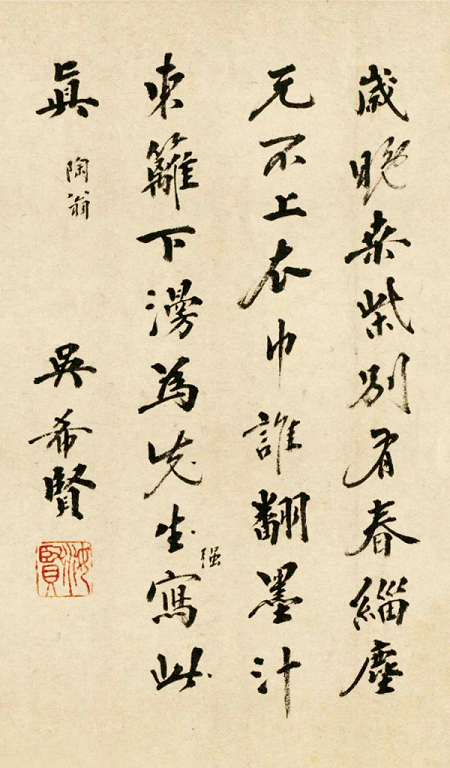 歲晚桒柴別有春緇塵
元不上衣巾誰翻墨汁
東籬下漫為先生强寫此
真 陶翁
吳希賢
汝賢